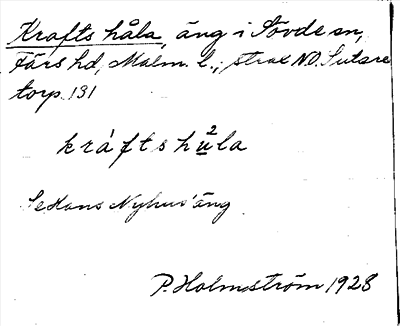 Krafts håla, äng i Sövde sn,
Färs hd, Malm. l., strax N.O. Sutare
torp. 131
kráftshu̲²la
Se Hans Nyhus' äng
P. Holmström 1928